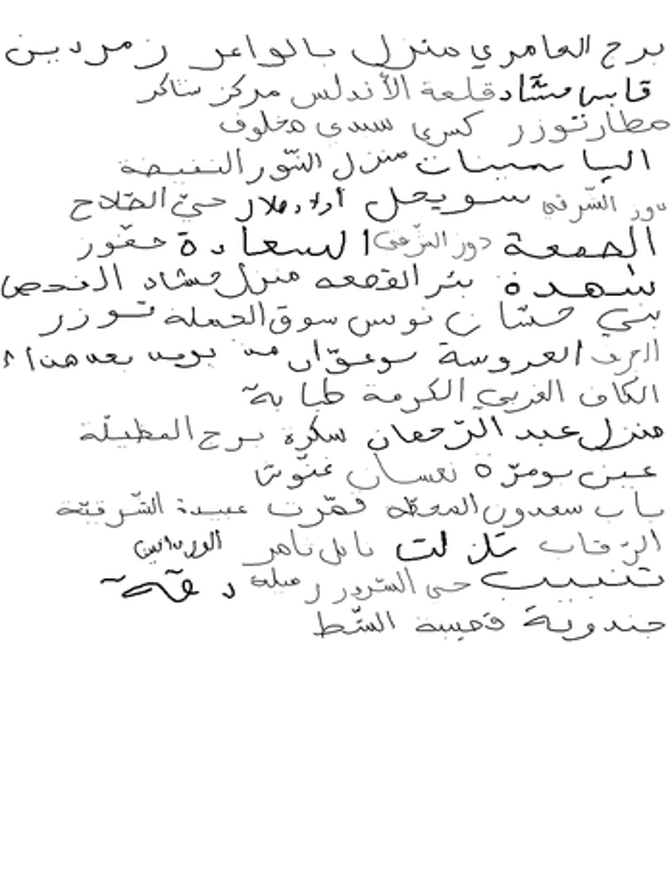 برج العامري منزل بالواعر زمردين
قابس مشاد قلعة الأندلس مركز شاكر
مطار توزر كسرى سيدي مخلوف
الياسمينات منزل النّور النفيضة
دوز الشّرفي سويحل أولاد هلال حيّ الفلاح
الجمعة دوز الشّرفي السعادة حفّوز
شهدة بئر القصعه منزل حشاد الفحص
بني حسّان تونس سوق الجملة توزر
العروسة بوعوّان
الكاف الغربي الكرمة طبابة
منزل عبد الرّحمان سكرة برج المظيلّة
عين بومرّة نعسان غنّوش
باب سعدون المحطّه قمّرت عبيدة الشّرقيّة
الرّقاب تلّالت نابل نامر
تنبيب حي السّرور رميلة دقة
جندوبة قميسة الشّط